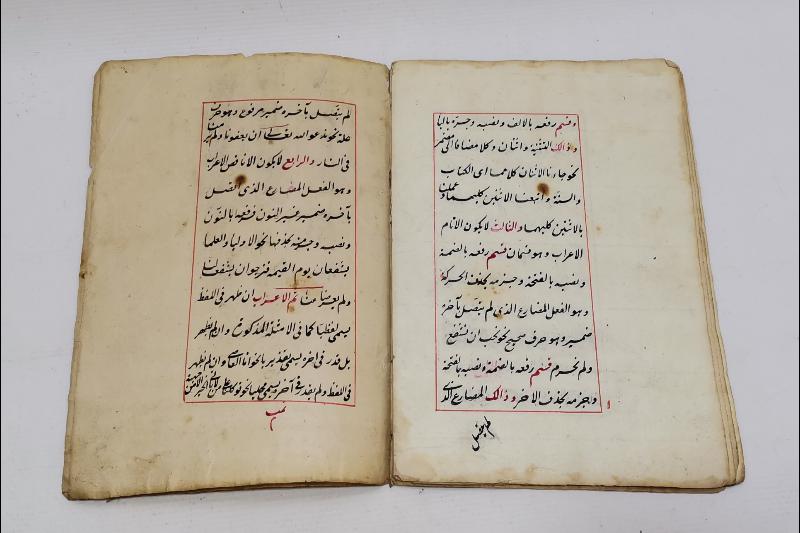 وقسم رفعه بالالف ونصبه وجره باليا
وذالك التثنية واثنان وكلا مضافا الى مضمر
نحو جاءنا الاثنان كلاهما اى الكتاب
والسنة واتبعنا الاثنين كليهما وعملنا
بالاثنين كليهما والثالث لا يكون الاتام
الاعراب وهو قسمان قسم رفعه بالضمة
ونصبه بالفتحة وجزمه بحذف الحركة
وهو الفعل المضارع الذى لم يتصل بآخره
ضمير وهو حرف صحيح نحو نحب ان نشفع
ولم نحرم قسم رفعه بالضمة ونصبه بالفتحة
وجزمه بحذف الاخر وذالك المضارع الذى
لم يتصل
لم يتصل بآخره ضمير مرفوع وهو حرف
علة نحو ندعوا الله تعالى ان يعفونا ولم يرمنا
فى النار والرابع لا يكون الا ناقص الاعراب
وهو الفعل المضارع الذى اتصل
بآخره ضمير غير النون فرفعه بالنون
ونصبه وجزمه بحذفها نحو الاوليا والعلما
يشفعان يوم القيمة فنرجوان يشفعا لنا
ولم يعرضا عنا ثم الاعراب ان ظهر فى اللفظ
يسمى لفظيا كما فى الامثلة المذكورة وان لم يظهر
بل قدر فى اخره يسمى تقديريا نحو انا العاصى وان لم يظهر
فى اللفظ ولم يقدر فى آخره يسمى محليا نحو توكلنا على
تمت